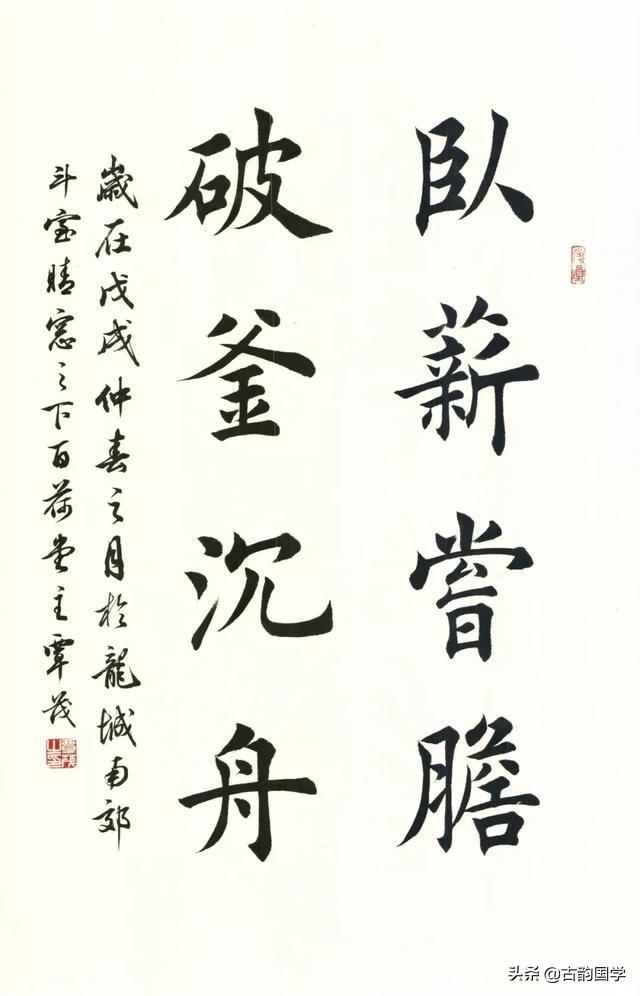 臥薪嘗膽
破釜沉舟
歲在戊戌仲春之月於龍城南郊
斗室晴窓之下百荷堂主覃茂
头条 @古韵国学